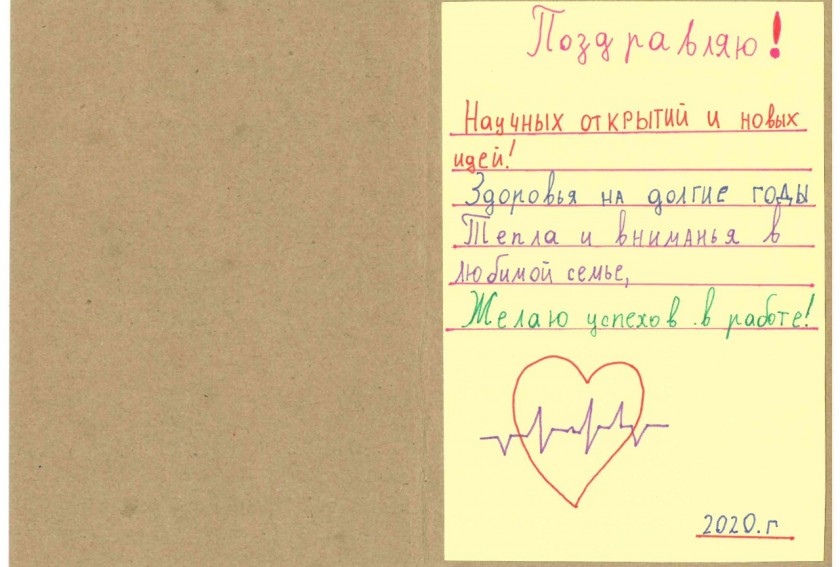 Поздравляю!
Научных открытий и новых
идей!
Здоровья на долгие годы
Тепла и вниманья в
любимой семье,
Желаю успехов в работе!
2020.г